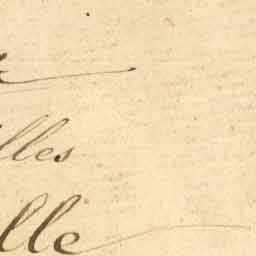 lles
lle